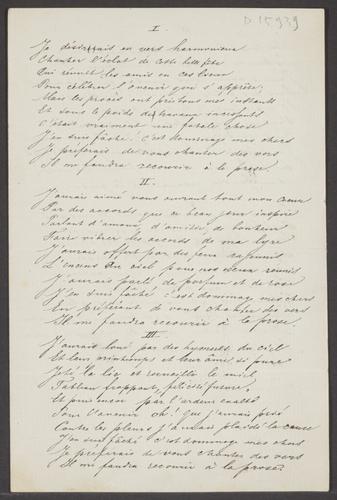 D. 15939
I.
Je désirerais en vers harmonieux
Chanter l'éclat de cette belle fête
Qui réunit les amis en ces lieux
Pour célébrer l'avenir qui s'apprête;
Mais les procès ont pris tous mes instants
Et sous le poids des travaux incessants
C'était vraiment une fatale chose
J'en suis fâché c'est dommage mes chers
Je préférais de vous chanter des vers
Il me faudra recourir à la prose.
II.
J'aurais aimé vous ouvrant tout mon cœur
Par des accords que ce beau jour inspire
Parlant d'amour d'amitié, de bonheur
Faire vibrer les accords de ma lyre
J'aurais offert par des jeux
L'encens du ciel pour nos cœurs réunis
J'aurais parlé de parfum et de rose
J'en suis fâché c'est dommage mes chers
En préférant de vous chanter des vers
Il me faudra recourir à la prose.
III.
J'aurais loué par des du ciel
Et leur printemps et leur âme si pure
le lis et le miel
Tableau frappant, félicité future.
Et puis mon par l'ardeur exalté
Pour l'avenir oh! que j'aurais
Contre les pleurs j'aurais plaidé la cause
J'en suis fâché c'est dommage mes chers
Je préférais de vous chanter des vers
Il me faudra recourir à la prose.